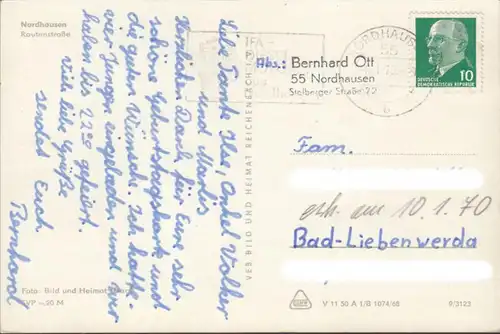 Nordhausen
Rautenstraße
Liebe Tante Ilse, Onkel Volker
und Martis
Herzlichen Dank für Eure sehr
schöne Geburtstagskarte und
die guten Wünsche. Ich hatte
vier Jungen eingeladen und wir
haben bis 22⁰⁰ gefeiert.
Viele liebe Grüße
sendet Euch
Bernhard
Foto: Bild und Heimat
EVP –,20 M
VEB BILD UND HEIMAT REICHENBACH I. V.
IFA-
NORDHAUSEN
55
b
Abs.: Bernhard Ott
55 Nordhausen
Stolberger Straße 22
DEUTSCHE
DEMOKRATISCHE REPUBLIK
10
Fam.
erh. am 10.1.70
Bad-Liebenwerda
V 11 50 A 1/B 1074/68
9/3123